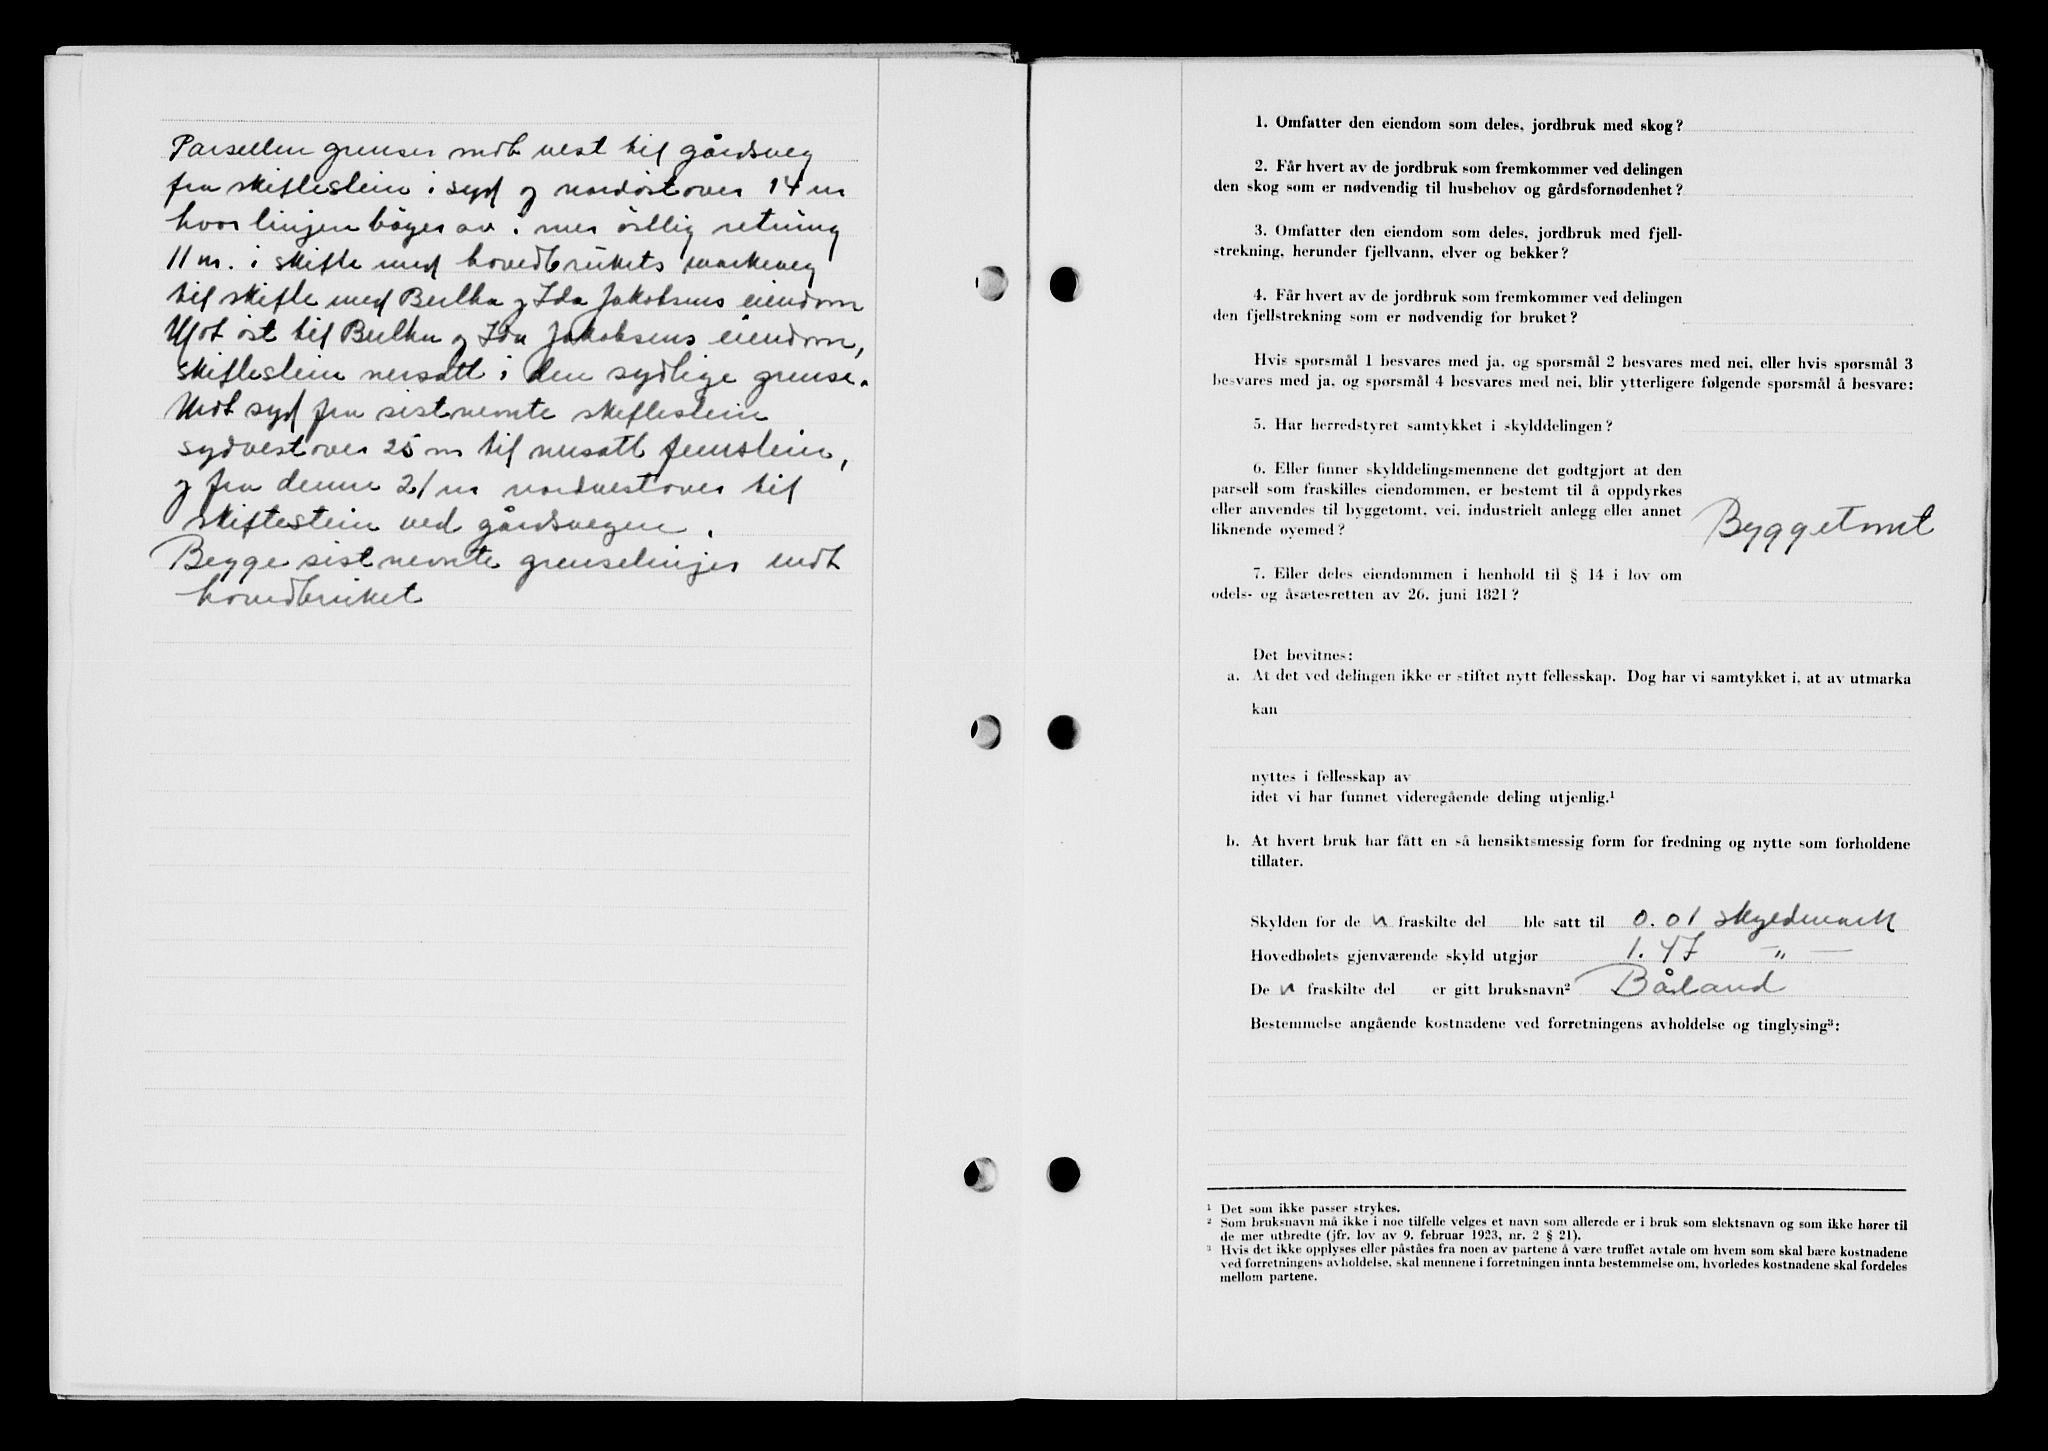 Parsellen grenser mot vest til gårdsveg
fra skiftestein i syd og nordöstover 14 m
hvor linjen böyer av i mer östlig retning
11 m. i skifte med hovedbrukets markeveg
til skifte med Bertha og Ida Jakobsens eiendom
Mot öst til Bertha og Ida Jakobsens eiendom,
skiftestein nersatt i den sydlige grense.
Mot syd fra sistnevnte skiftestein
sydvestover 25 m til nersatt stein,
og fra denne 21 m nordvestover til
skiftestein ved gårdsvegen.
Begge sistnevnte grenselinjer mot
hovedbruket
1. Omfatter den eiendom som deles, jordbruk med skog?
2. Får hvert av de jordbruk som fremkommer ved delingen
den skog som er nødvendig til husbehov og gårdsfornødenhet?
3. Omfatter den eiendom som deles, jordbruk med fjell-
strekning, herunder fjellvann, elver og bekker?
4. Får hvert av de jordbruk som fremkommer ved delingen
den fjellstrekning som er nødvendig for bruket?
Hvis spørsmål 1 besvares med ja, og spørsmål 2 besvares med nei, eller hvis spørsmål 3
besvares med ja, og spørsmål 4 besvares med nei, blir ytterligere følgende spørsmål å besvare:
5. Har herredstyret samtykket i skylddelingen?
6. Eller finner skylddelingsmennene det godtgjort at den
parsell som fraskilles eiendommen, er bestemt til å oppdyrkes
eller anvendes til byggetomt, vei, industrielt anlegg eller annet
liknende øyemed? Byggetomt
7. Eller deles eiendommen i henhold til § 14 i lov om
odels- og åsætesretten av 26. juni 1821?
Det bevitnes:
a. At det ved delingen ikke er stiftet nytt fellesskap. Dog har vi samtykket i, at av utmarka
kan
nyttes i fellesskap av
idet vi har funnet videregående deling utjenlig.¹
b. At hvert bruk har fått en så hensiktsmessig form for fredning og nytte som forholdene
tillater.
Skylden for de n fraskilte del ble satt til 0.01 skyldmark
Hovedbølets gjenværende skyld utgjør 1.47 — „ —
De n fraskilte del er gitt bruksnavn² Båland
Bestemmelse angående kostnadene ved forretningens avholdelse og tinglysing³:
¹ Det som ikke passer strykes.
² Som bruksnavn må ikke i noe tilfelle velges et navn som allerede er i bruk som slektsnavn og som ikke hører til
de mer utbredte (jfr. lov av 9. februar 1923, nr. 2 § 21).
³ Hvis det ikke opplyses eller påståes fra noen av partene å være truffet avtale om hvem som skal bære kostnadene
ved forretningens avholdelse, skal mennene i forretningen innta bestemmelse om, hvorledes kostnadene skal fordeles
mellom partene.